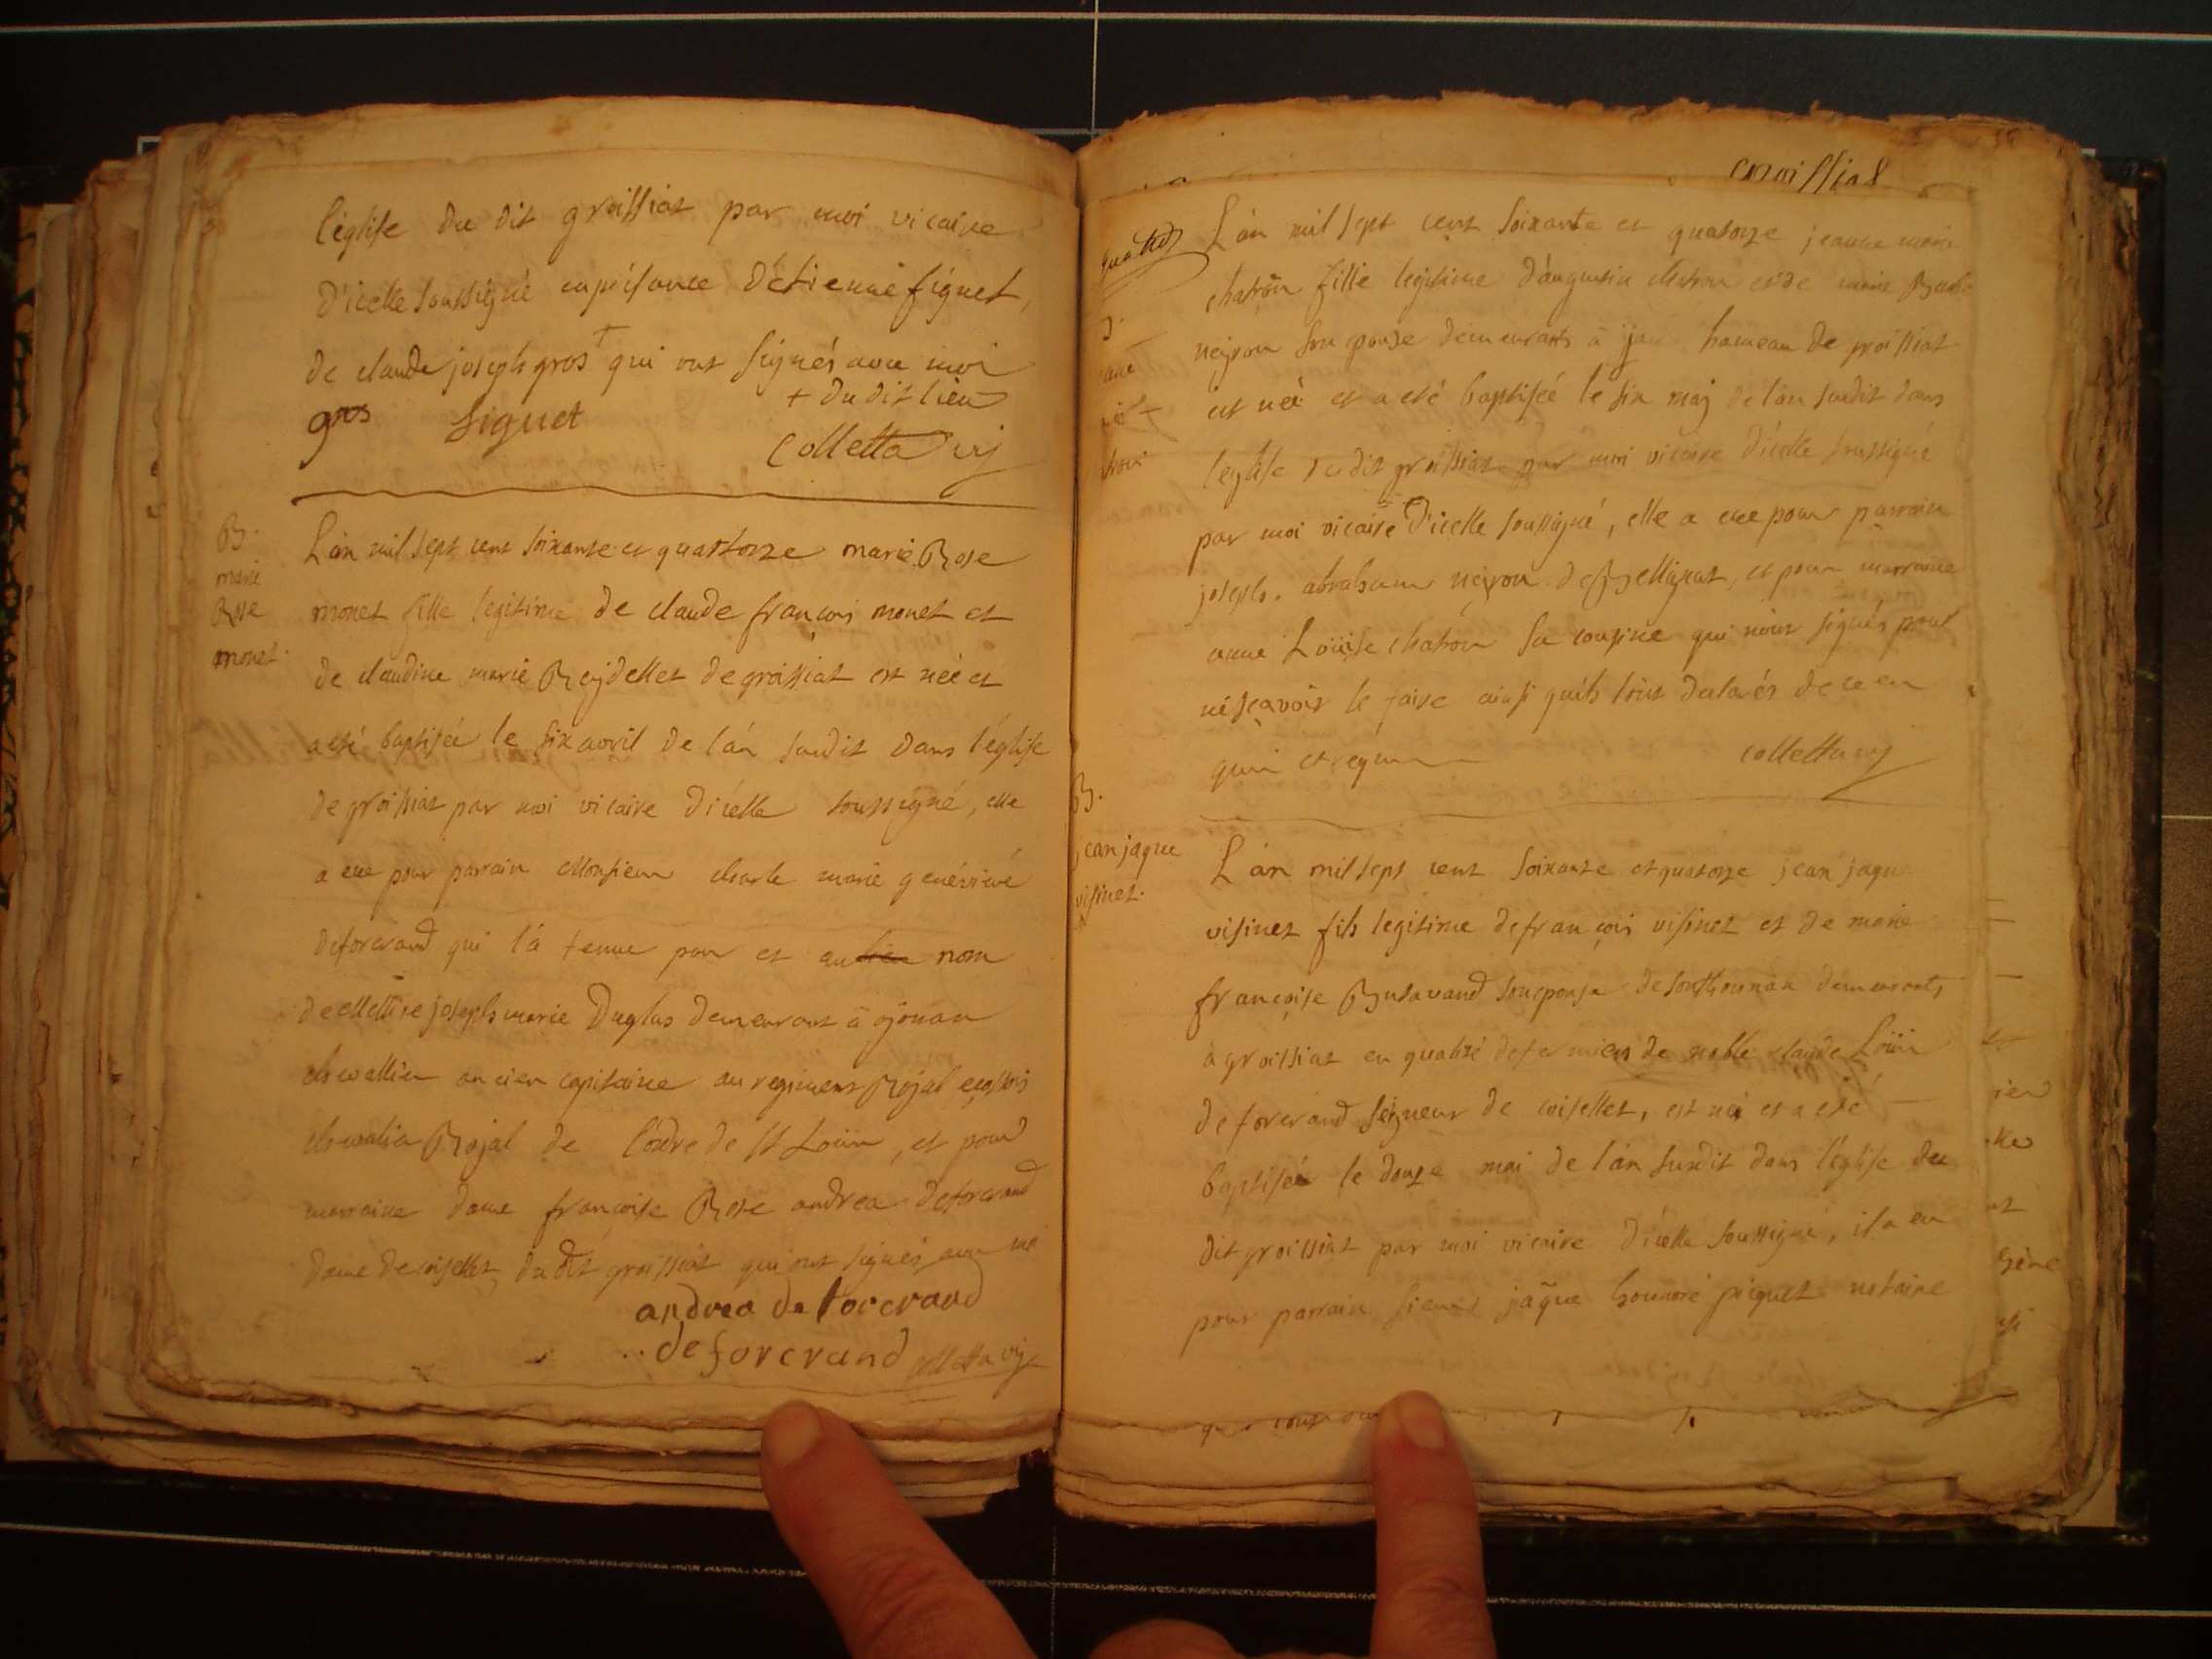 l'église du dit groissiat par moi vicaire
d'icelle soussigné en présance d'étienne figuet,
de claude joseph gros + qui ont signés avec moi
+ du dit lieu
gros figuet
Colletta vi
B.
marie
Rose
monet.
L'án mil sept cent soixante et quattorze marie Rose
monet fille legitime de claude françois monet et
de claudine marie Reydellet de groissiat est née et
a eté baptisée le six avril de l'án susdit dans l'église
de groissiat par moi vicaire d'icelle soussigné, elle
a eue pour parrain Monsieur charle marie
deforcrand qui l'á tenue pour et au nom
de Messire joseph marie Duglas demeurant á
chevallier ancien capitaine au regiment Royal ecossois
chevalier Royal de l'ordre de St Loüis, et pour
marraine dame françoise Rose andrea deforcrand
dame de coisellet du dit groissiat qui ont signés avec moi
andréa de forcrand
deforcrand colletta vi
groissiat
L'án mil sept cent soixante et quatorze jeanne marie
chatron fille legitime d'augustin chatron et de marie
neyron son epouse demeurants á hameau de groissiat
est née et a eté baptisée le six maj de l'án susdit dans
l'eglise du dit groissiat par moi vicaire d'icelle soussigné
par moi vicaire d'icelle soussigné, elle a eue pour parrain
joseph. abraham neyron de Bellignat, et pour marraine
anne Loüise chatron sa cousine qui n'ont signés pour
ne sçavoir le faire ainsi qu'ils l'ont declarés de ce en
quis et requis
colletta vi
B.
jean jaque
visinet.
L'án mil sept cent soixante et quatorze jean jaque
visinet fils legitime de françois visinet et de marie
françoise son epouse de demeurants
á groissiat en qualité de fermiers de noble claude Loüis
de forcrand seigneur de coisellet, est né et a eté
baptisée le douze mai de l'án susdit dans l'église du
dit groissiat par moi vicaire d'icelle soussigné, il a eu
pour parrain sieur jaque honnoré piquet notaire